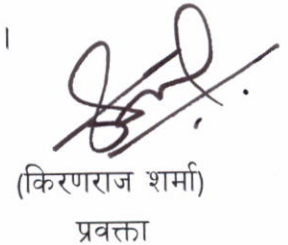 ।
(किरणराज शर्मा)
प्रवक्ता